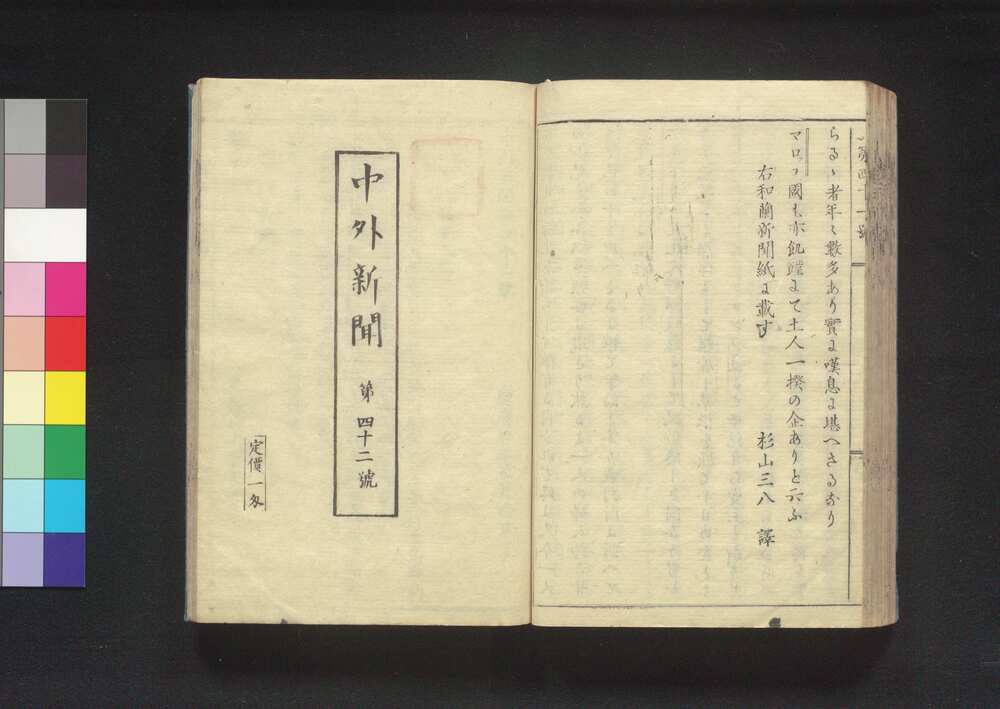 第四十一号
らるゝ者年々數多あり實に嘆息に堪へさるなり
マロツ國も亦飢饉にて土人一揆の企ありと云ふ
右和蘭新聞紙に載す
杉山三八 譯
中外新聞 第四十二號
定價一匁